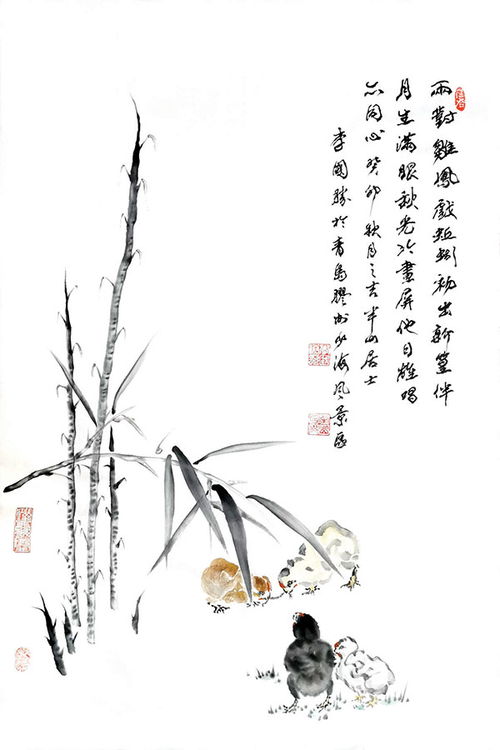 兩對雛鳳戲短初出新篁伴
月生滿眼秋光冷畫屏他日雄唱
亦同心癸卯秋月之吉半山居士
李國勝於青島膠州少海風景區